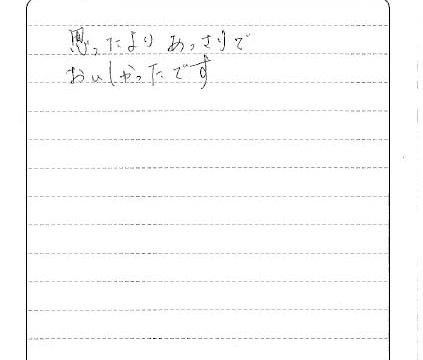 思ったよりあっさりで
おいしかったです